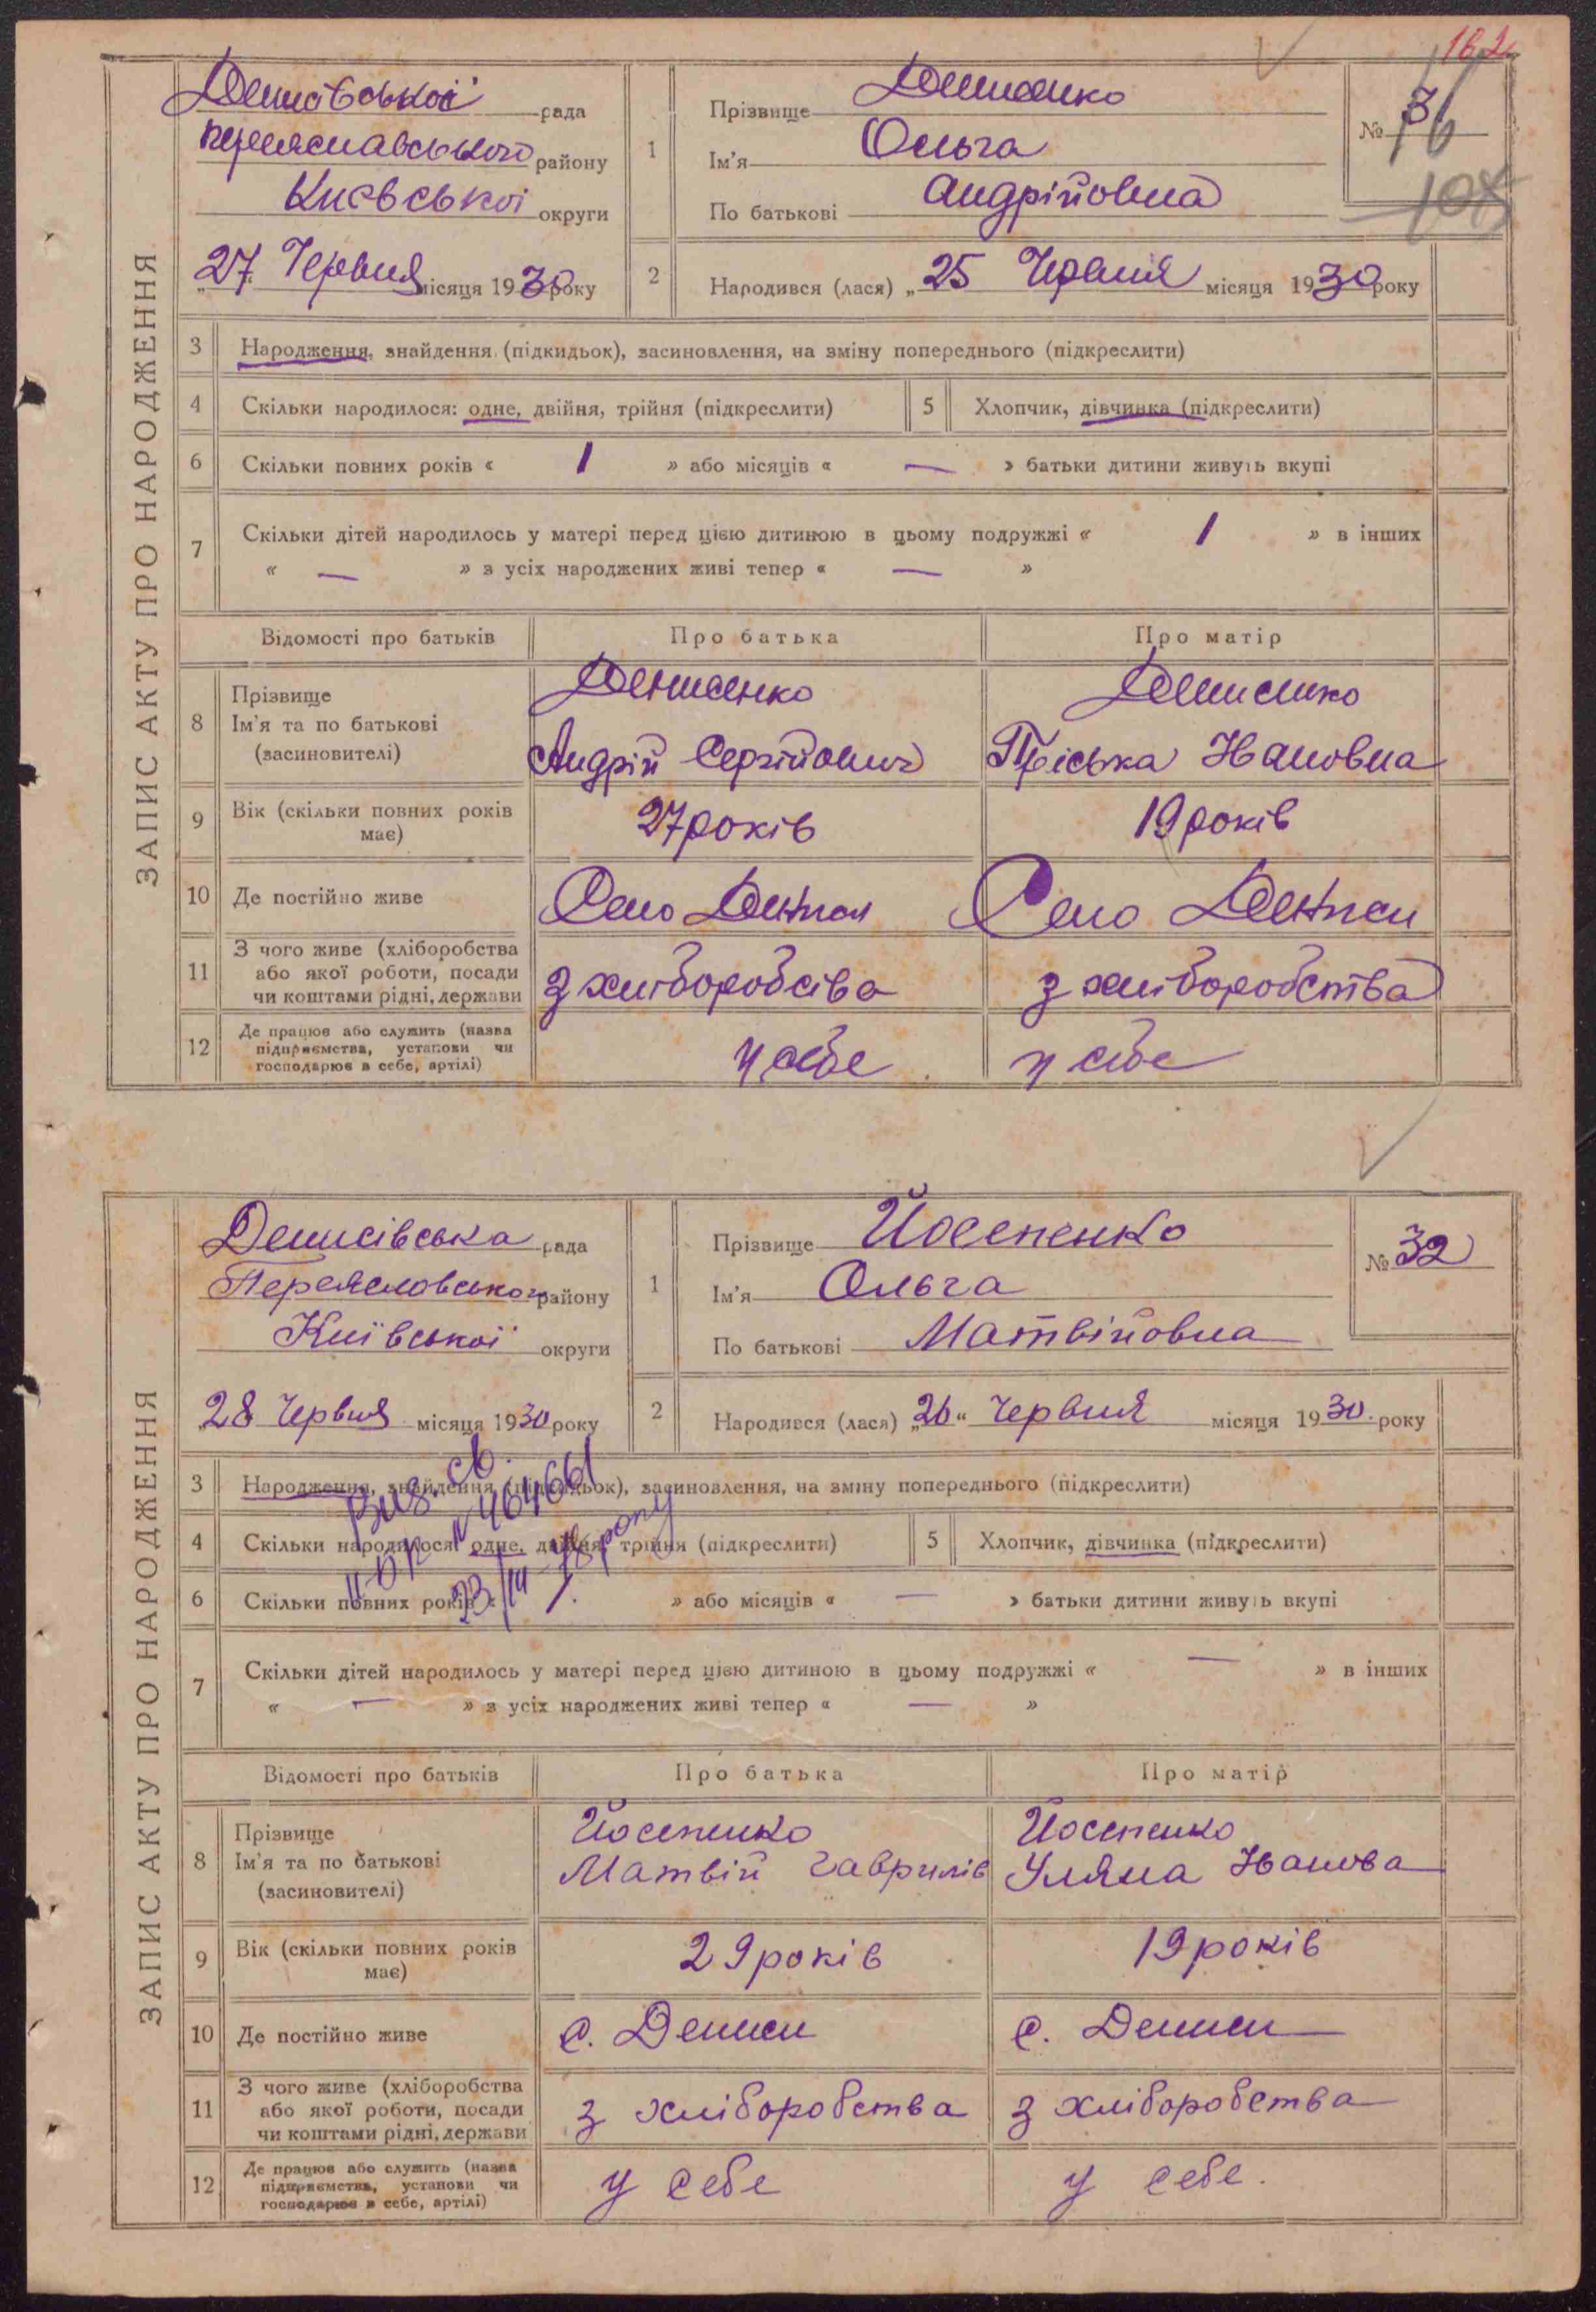 162
ЗАПИС АКТУ ПРО НАРОДЖЕННЯ
Денисівської рада
Переяславського району
Києвської округи
„27“ Червня місяця 1930 року
1
Прізвище Денисенко
Ім'я Ольга
По батькові Андрійовна
№ 31
108
2
Народився (лася) „25 Червня місяця 1930 року
3 Народження, знайдення (підкидьок), засиновлення, на зміну попереднього (підкреслити)
4 Скільки народилося: одне, двійня, трійня (підкреслити)
5 Хлопчик, дівчинка (підкреслити)
6 Скільки повних років « 1 » або місяців « — » батьки дитини живуть вкупі
7 Скільки дітей народилось у матері перед цією дитиною в цьому подружжі « 1 » в інших
« — » з усіх народжених живі тепер « — »
Відомості про батьків Про батька Про матір
8 Прізвище
Ім'я та по батькові
(засиновителі)
Денисенко
Андрій Сергійович
Денисенко
Пріська Ивановна
9 Вік (скільки повних років
має)
27 років 19 років
10 Де постійно живе Село Дениси Село Дениси
11 З чого живе (хліборобства
або якої роботи, посади
чи коштами рідні, держави
з хліборобства з хліборобства
12 Де працює або служить (назва
підприємства, установи чи
господарює в себе, артілі)
у себе у себе
ЗАПИС АКТУ ПРО НАРОДЖЕННЯ
Денисівська рада
Переяславського району
Київської округи
„28 Червня місяця 1930 року
1
Прізвище Йосипенко
Ім'я Ольга
По батькові Матвійовна
№ 32
2
Народився (лася) „26“ Червня місяця 1930. року
3 Народження, знайдення (підкидьок), засиновлення, на зміну попереднього (підкреслити)
Вид. св.
4 Скільки народилося: одне, двійня, трійня (підкреслити)
5 Хлопчик, дівчинка (підкреслити)
6 Скільки повних років « 1. » або місяців « — » батьки дитини живуть вкупі
7 Скільки дітей народилось у матері перед цією дитиною в цьому подружжі « — » в інших
« — » з усіх народжених живі тепер « — »
Відомості про батьків Про батька Про матір
8 Прізвище
Ім'я та по батькові
(засиновителі)
Йосипенко
Матвій Гаврилів
Йосипенко
Уляна Иванова
9 Вік (скільки повних років
має)
29 років 19 років
10 Де постійно живе с. Дениси с. Дениси
11 З чого живе (хліборобства
або якої роботи, посади
чи коштами рідні, держави
з хліборобства з хліборобства
12 Де працює або служить (назва
підприємства, установи чи
господарює в себе, артілі)
у себе у себе.